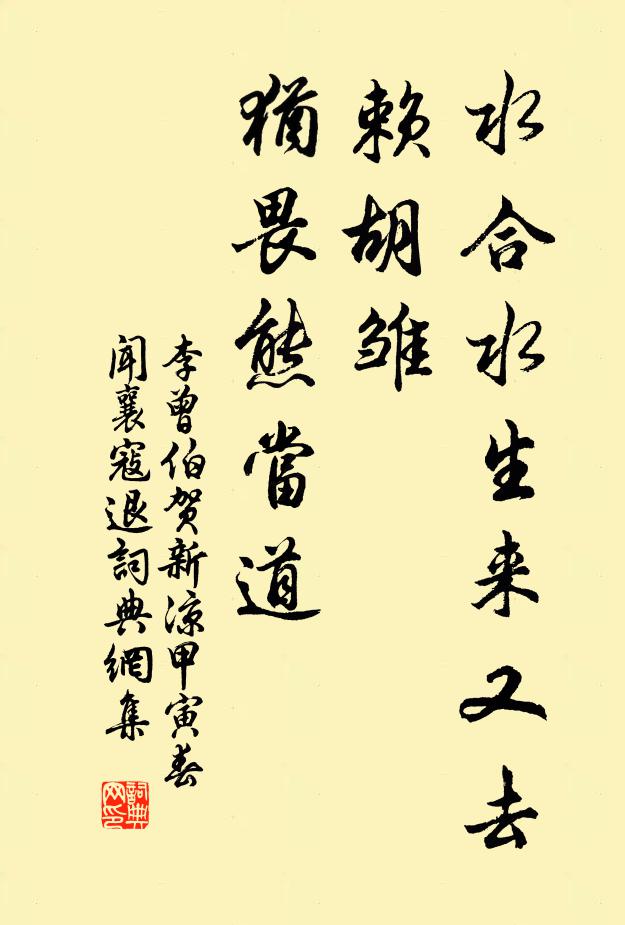 水合水生来又去
赖胡雏
猶畏熊當道
李曾伯贺新涼甲寅春
闻襄寇退詞典網集
詞典网印